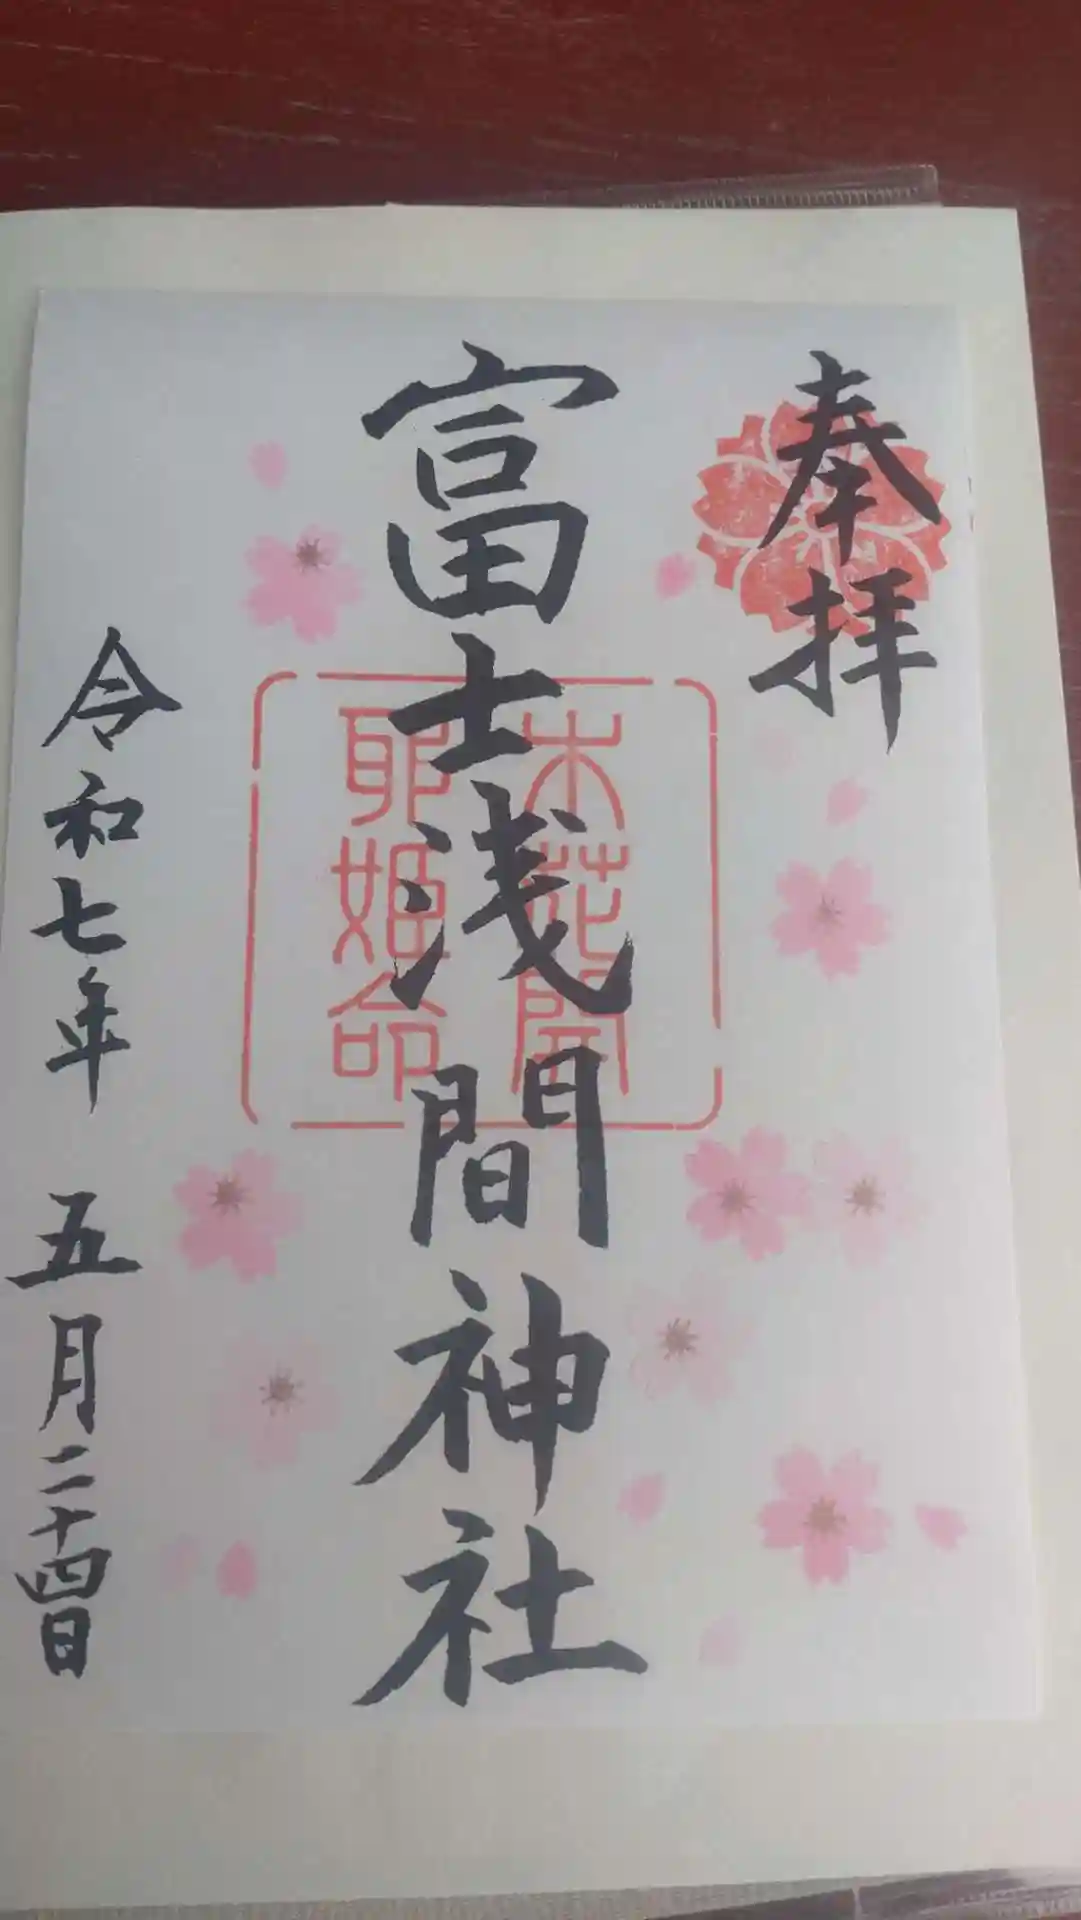 奉拝
富士浅間神社
木花開
耶姫命
令和七年 五月二十四日